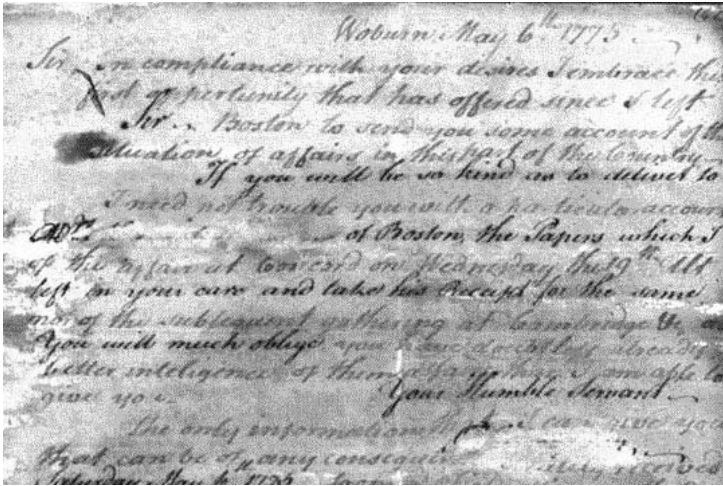 Woburn May 6th. 1775
Sir, In compliance with your desires I embrace the
first opportunity that has offered since I left
Sir.. Boston to send you some account of the
situation of affairs in this part of the Country
If you will be so kind as to deliver to
I need not trouble you with a particular account
of Boston, the Papers which I
of the affair at Concord on Wednesday the 19th Ult
left in your care and take his Receipt for the same
nor of the subsequent gathering at Cambridge &c as
You will much oblige you have doubtless already
better inteligence of them than I am able to
Your Humble Servant
give you.
The only information that I can give you
that can be of any consequence received
Saturday May 6. 1775